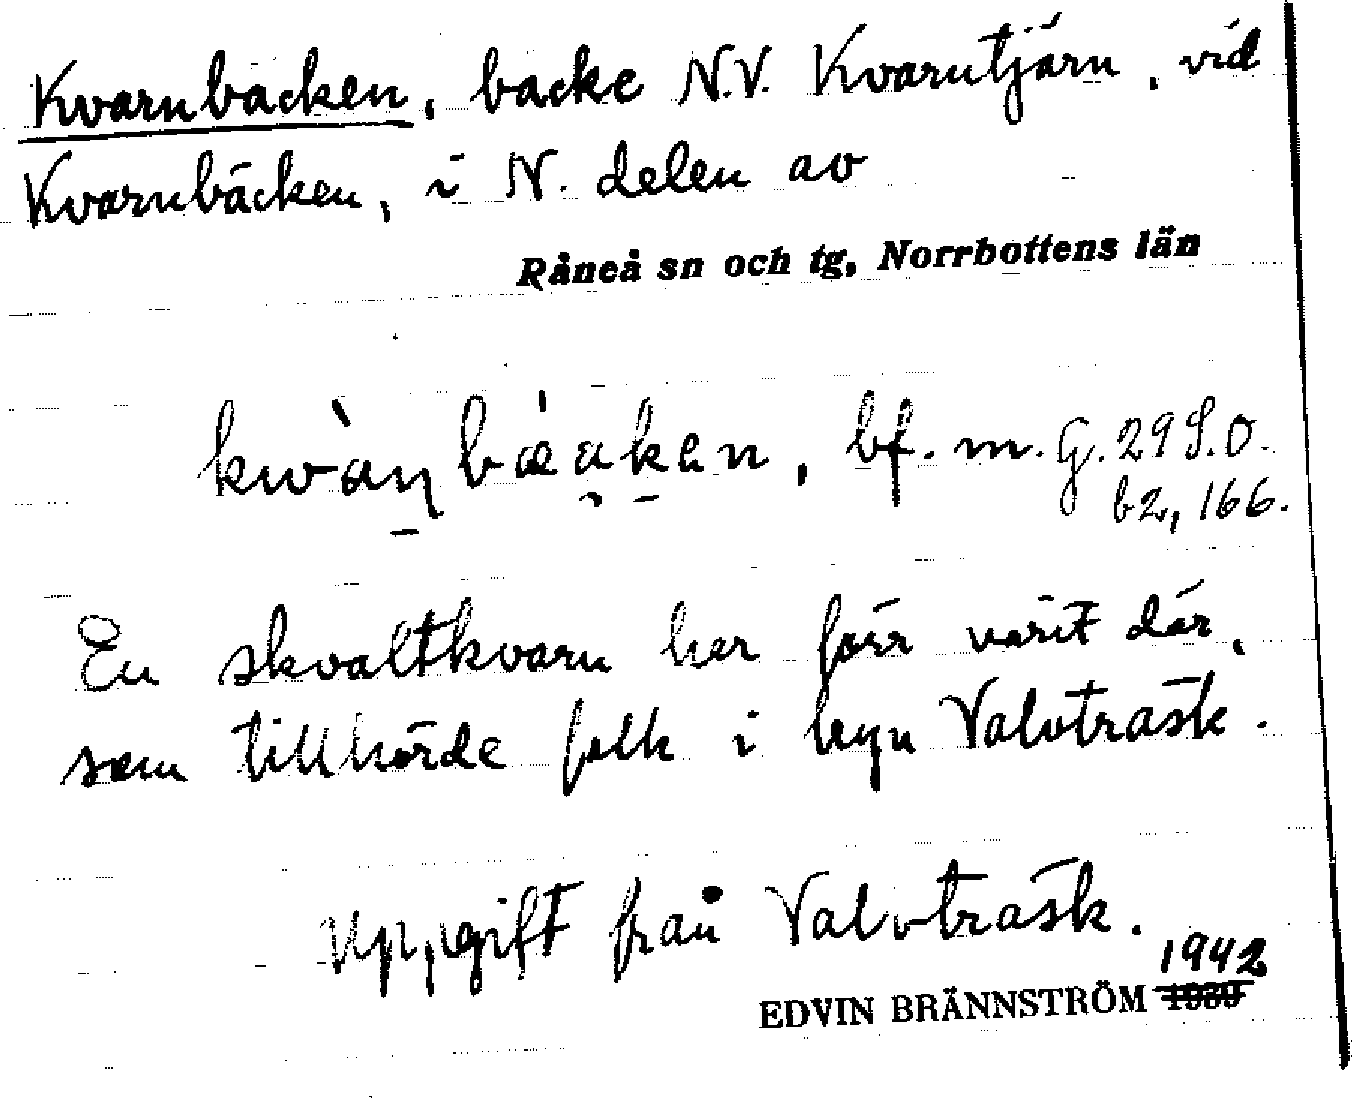 Kvarnbacken, backe N.V. Kvarntjärn, vid
Kvarnbäcken, i N. delen av
Råneå sn och tg, Norrbottens län
bf. m. G. 29 S.O.
b2, 166.
En skvaltkvarn har förr varit där,
som tillhörde folk i byn Valvträsk.
Uppgift från Valvträsk.
1942
EDVIN BRÄNNSTRÖM 1939